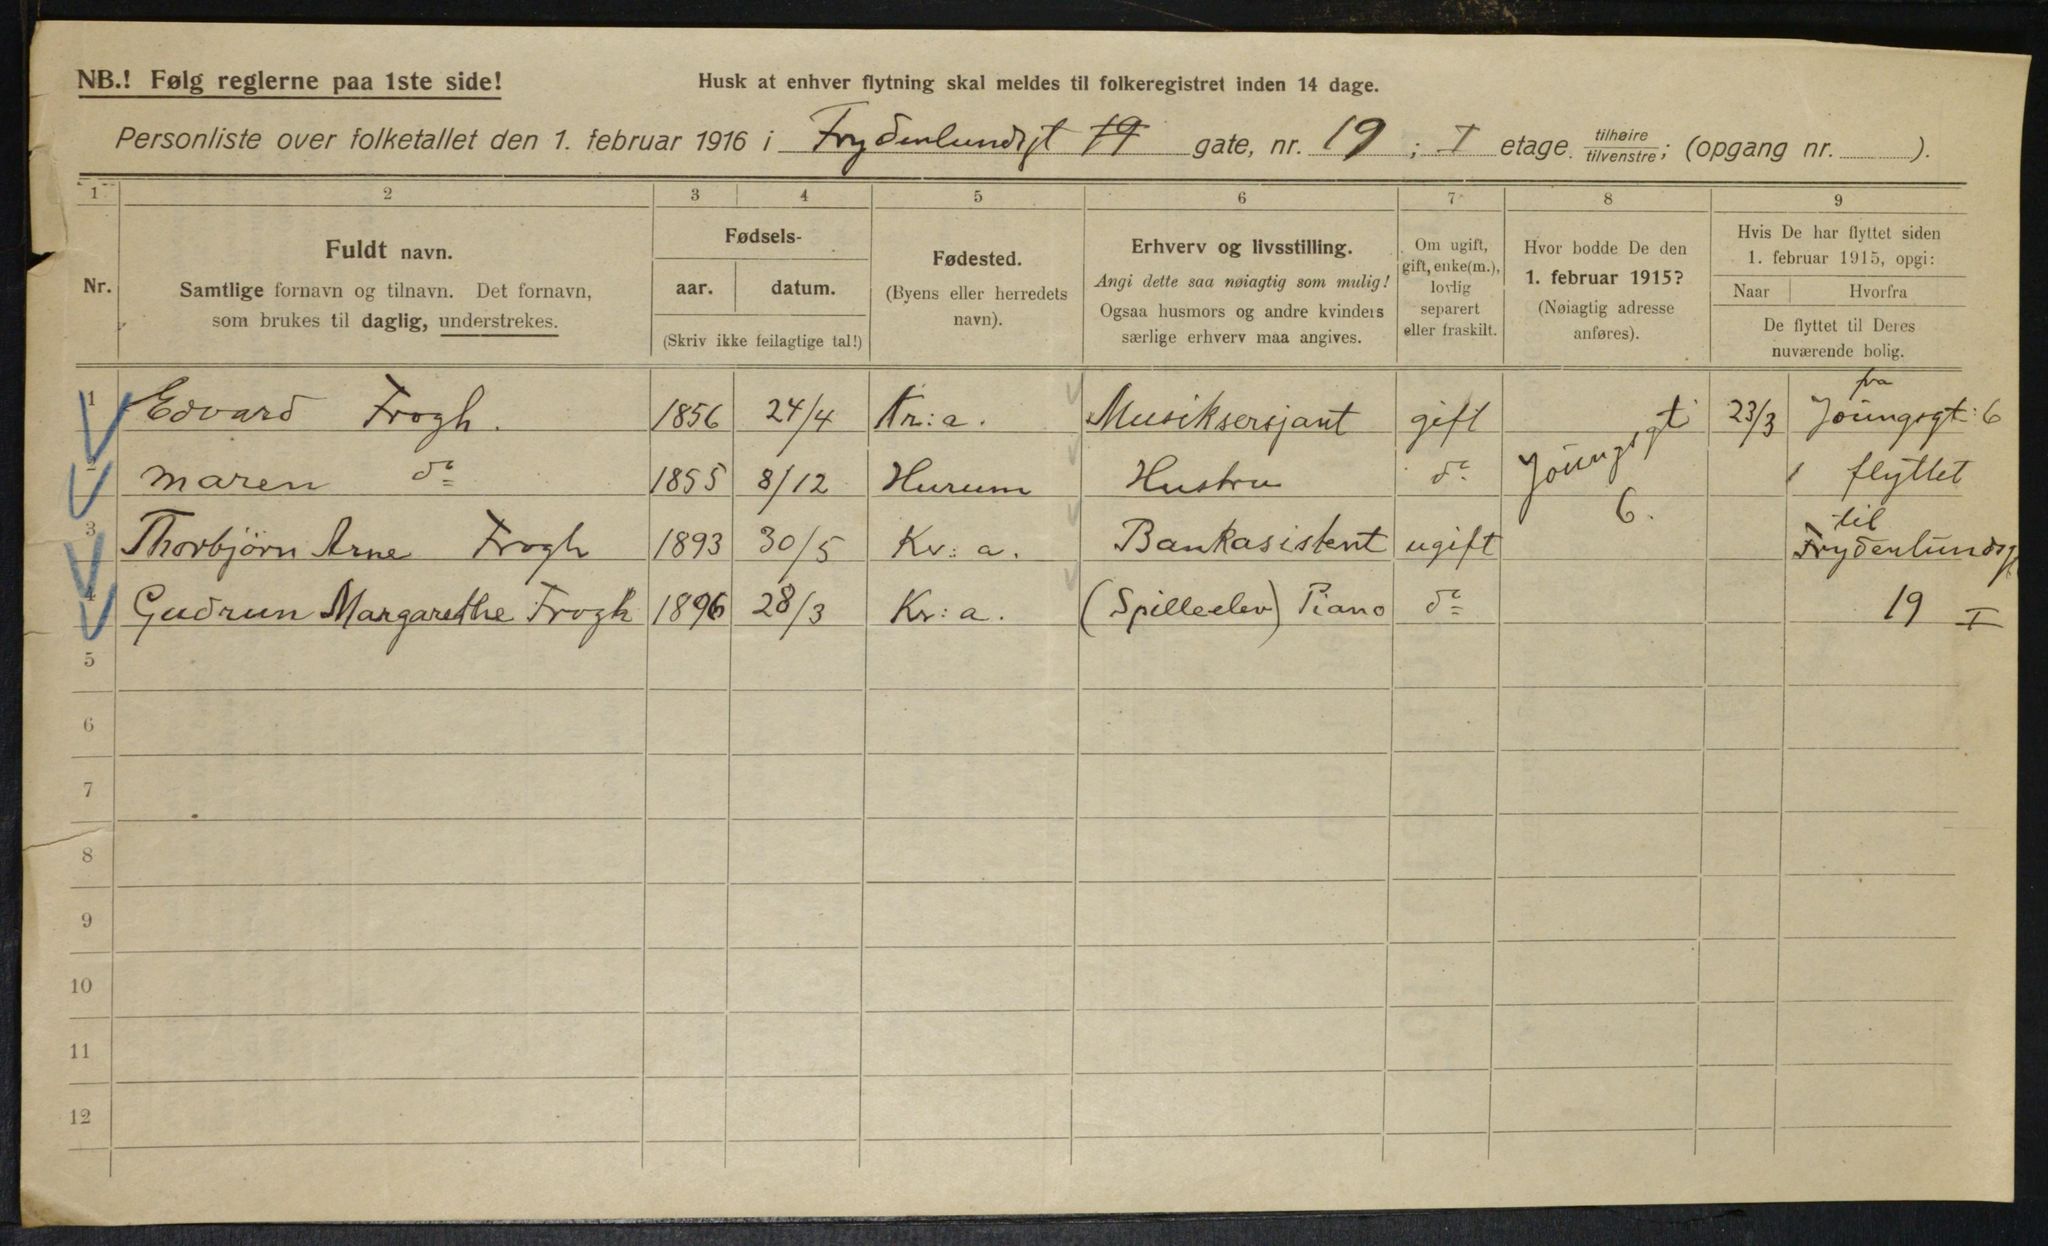 NB.! Følg reglerne paa 1ste side!
Husk at enhver flytning skal meldes til folkeregistret inden 14 dage.
Personliste over folketallet den 1. februar 1916 i Frydenlundsgt 19 gate, nr. 19; I etage. tilhøire/tilvenstre; (opgang nr. ).
1 2 3 4 5 6 7 8 9
Nr.
Fuldt navn.
Samtlige fornavn og tilnavn. Det fornavn,
som brukes til daglig, understrekes.
Fødsels-
aar. datum.
(Skriv ikke feilagtige tal!)
Fødested.
(Byens eller herredets
navn).
Erhverv og livsstilling.
Angi dette saa nøiagtig som mulig!
Ogsaa husmors og andre kvinders
særlige erhverv maa angives.
Om ugift,
gift, enke(m.),
lovlig
separert
eller fraskilt.
Hvor bodde De den
1. februar 1915?
(Nøiagtig adresse
anføres).
Hvis De har flyttet siden
1. februar 1915, opgi:
Naar Hvorfra
De flyttet til Deres
nuværende bolig.
1 Edvard Frogh. 1856 24/4 Kr: a. Musiksersjant gift Youngsgt 23/3 fra Youngsgt: 6
2 Maren do 1855 8/12 Hurum Hustru do 6. flyttet
3 Thorbjörn Arne Frogh 1893 30/5 Kr: a. Bankasistent ugift til Frydenlundsgt
4 Gudrun Margarethe Frogh 1896 28/3 Kr: a. (Spilleelev) Piano do 19 I
5
6
7
8
9
10
11
12